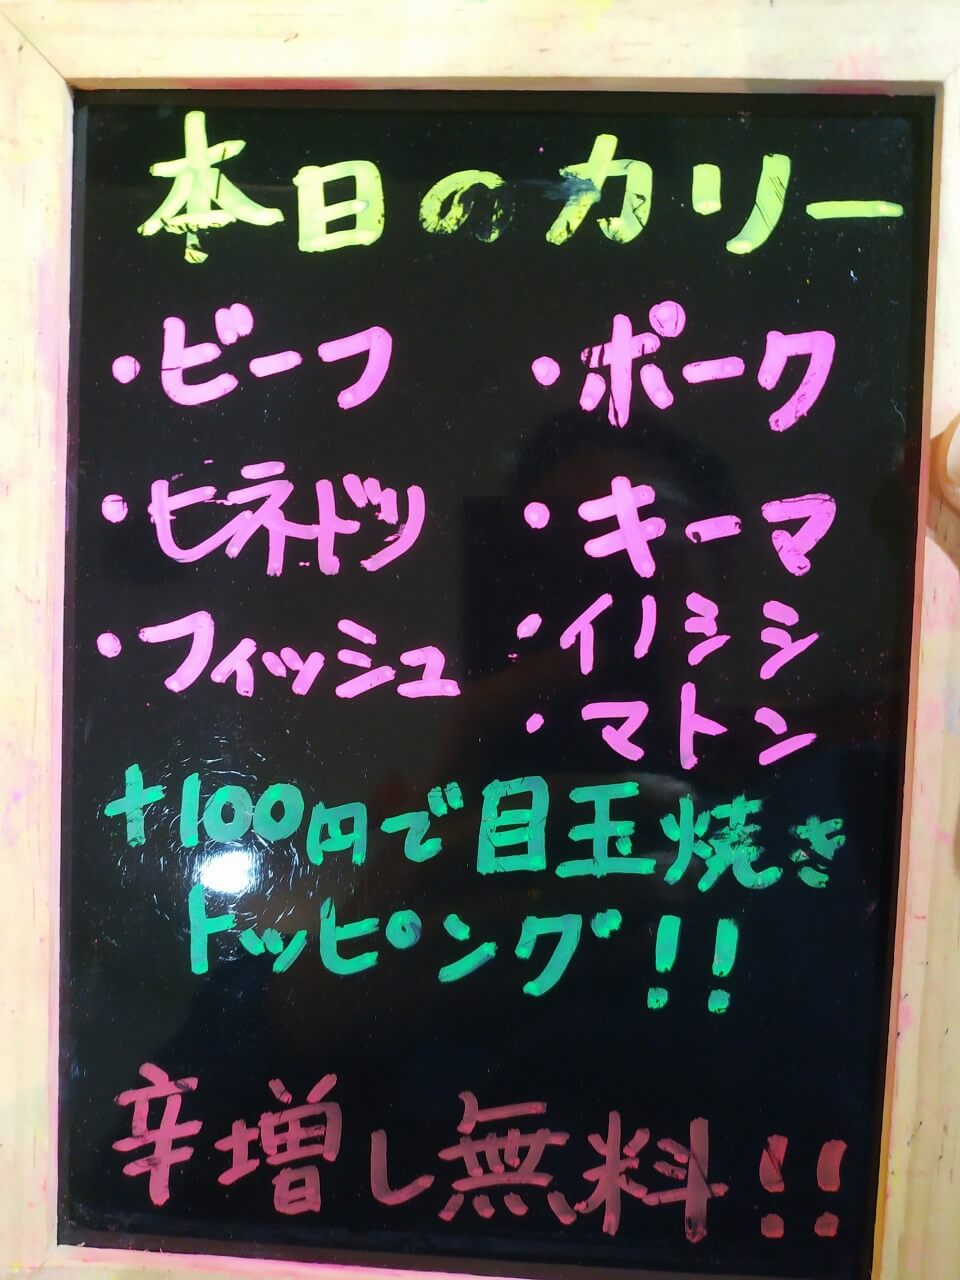 本日のカリー
・ビーフ ・ポーク
・ヒネドリ ・キーマ
・フィッシュ ・イノシシ
・マトン
+100円で目玉焼き
トッピング!!
辛増し無料!!